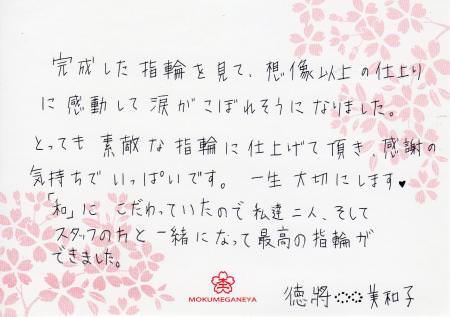 完成した指輪を見て、想像以上の仕上り
に感動して涙がこぼれそうになりました。
とっても素敵な指輪に仕上げて頂き、感謝の
気持ちでいっぱいです。一生大切にします♥
「和」にこだわっていたので私達二人、そして
スタッフの方と一緒になって最高の指輪が
できました。
MOKUMEGANEYA
徳将 美和子